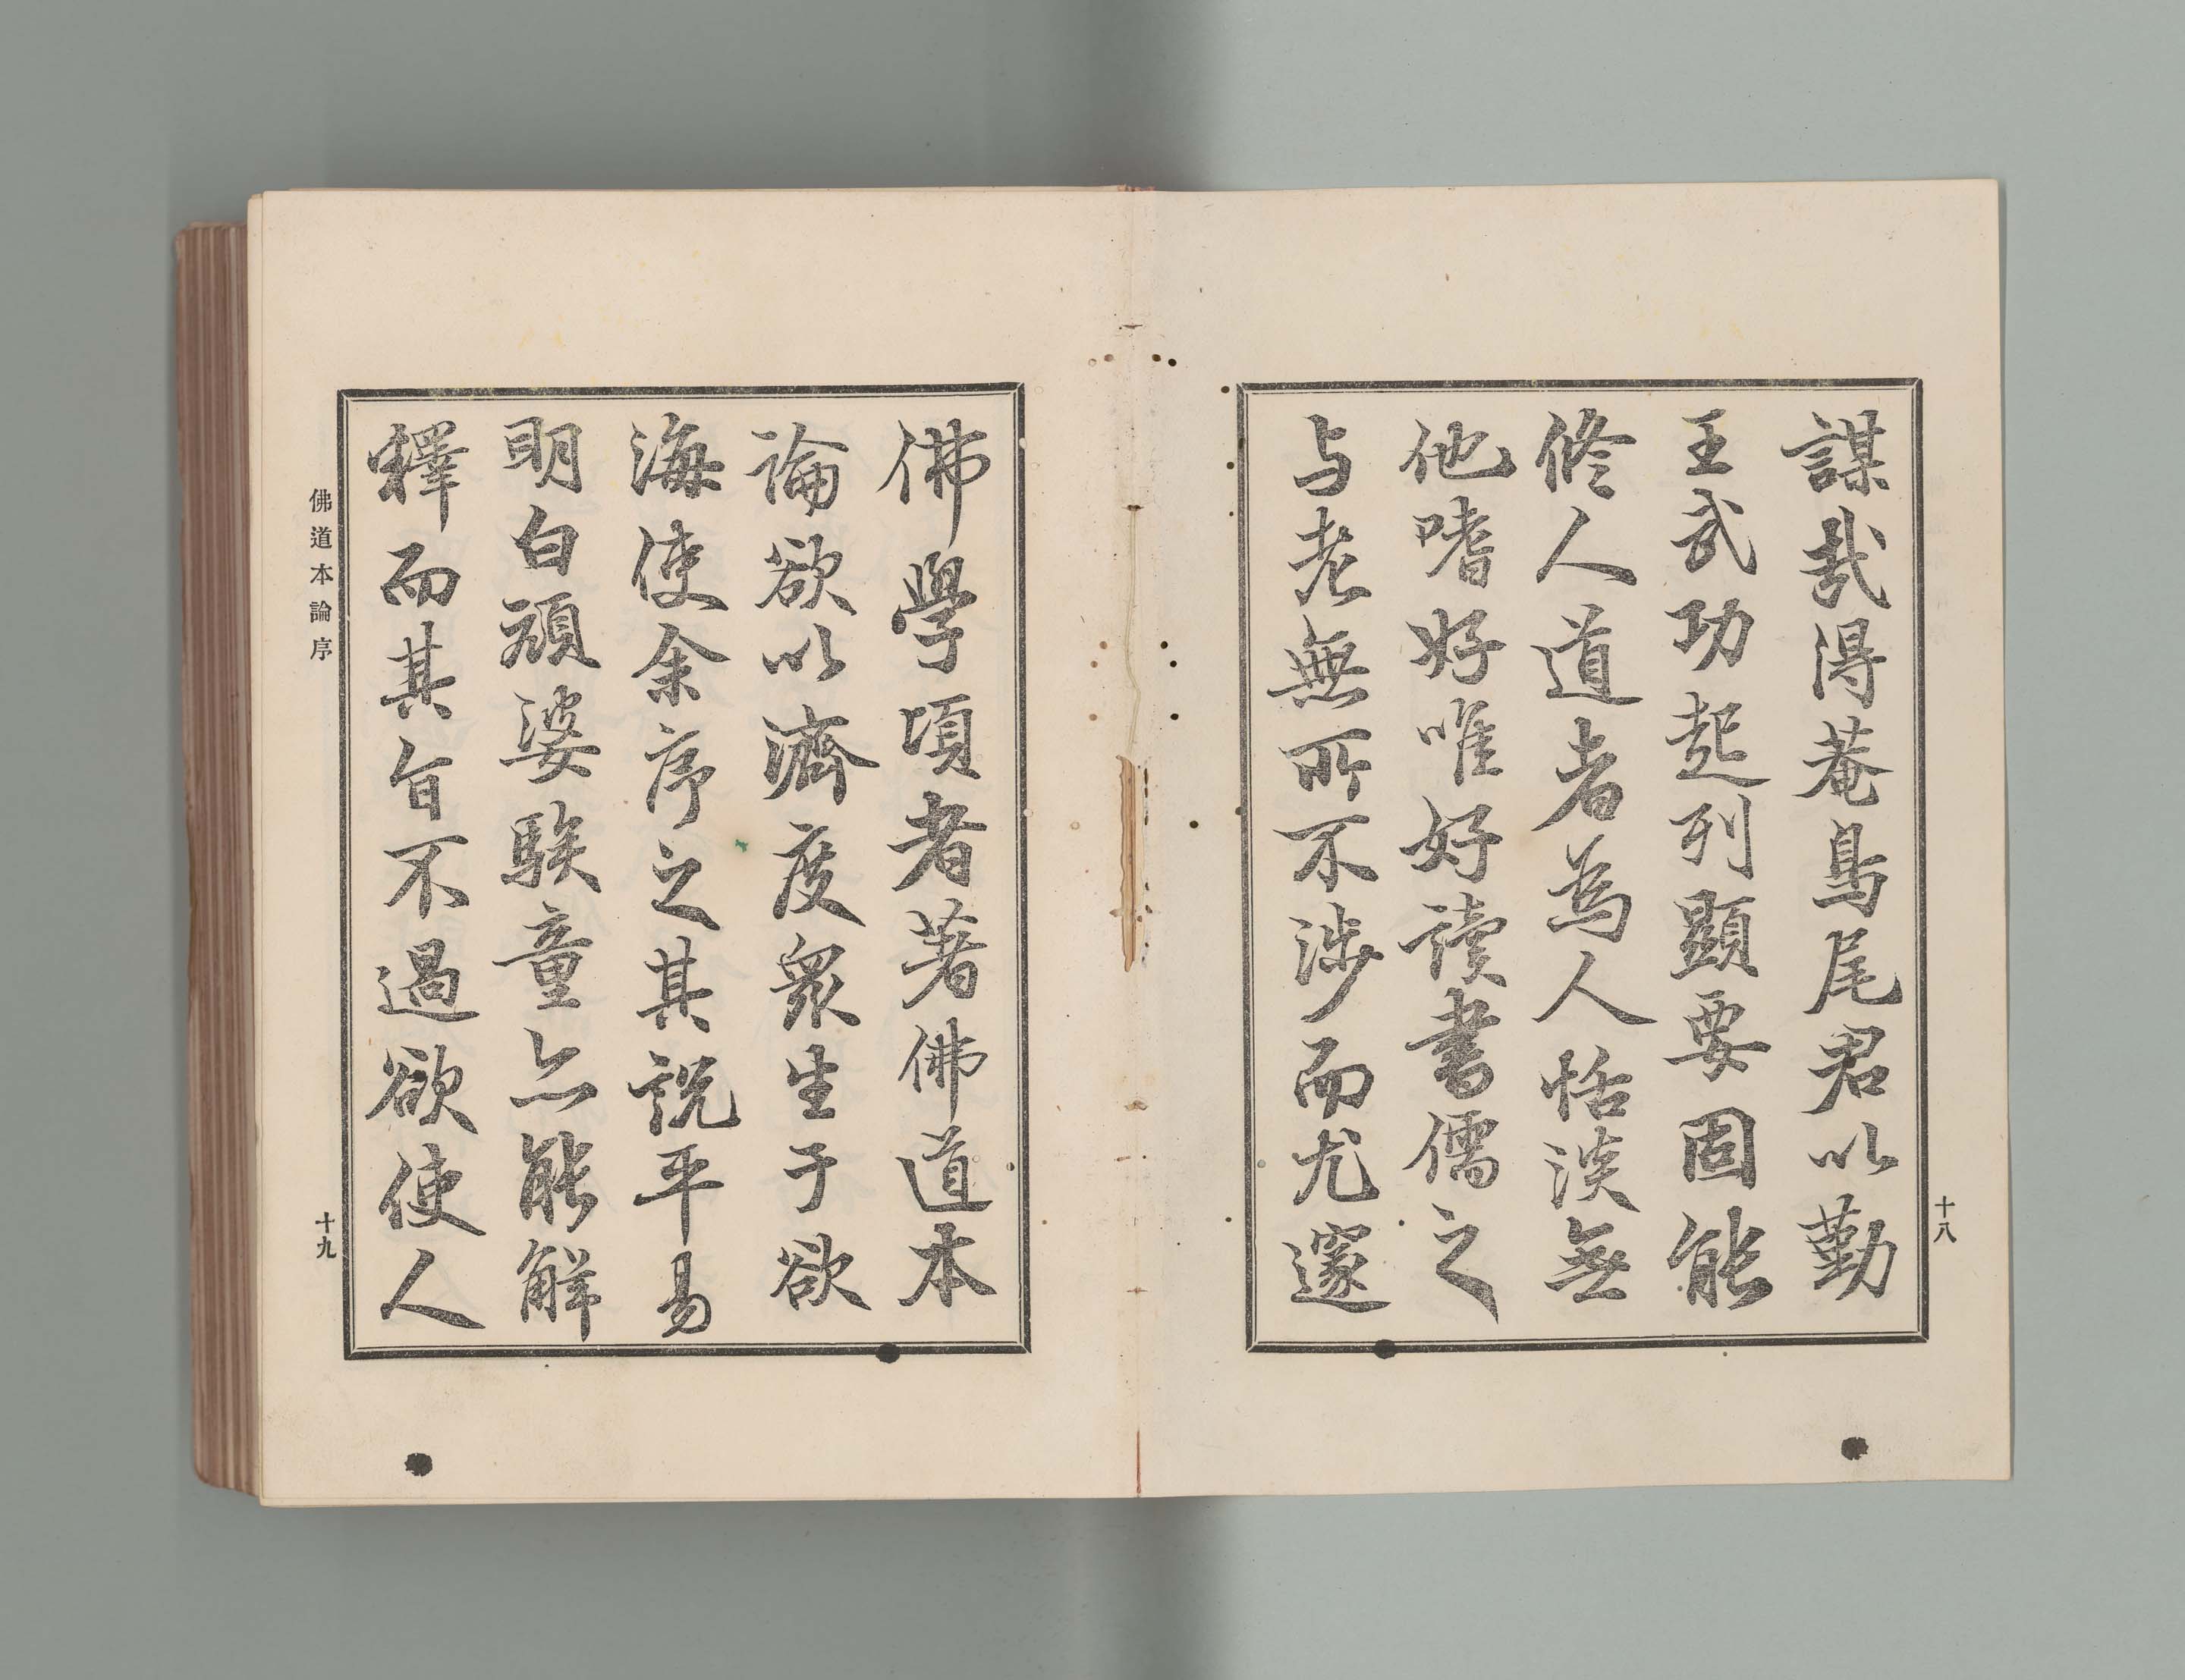 謀哉得菴鳥尾君以勤
王武功起列顯要固能
修人道者為人恬淡無
他嗜好唯好讀書儒之
与老無所不涉而尤邃
十八
佛學頃者著佛道本
論欲以濟度眾生于欲
海使余序之其説平易
明白頑婆騃童亦能解
釋而其旨不過欲使人
佛道本論序
十九